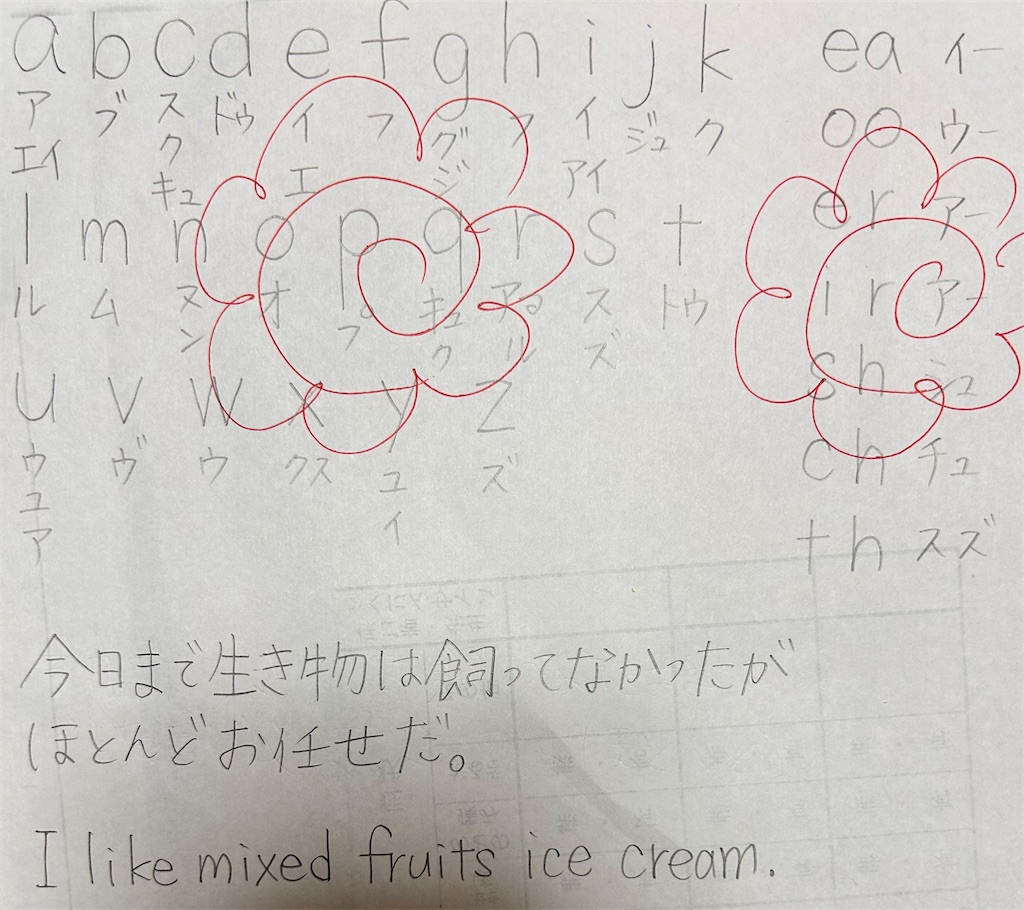 a b c d e f g h i j k
ア ブ ス ドゥ イ フ グ ア イ ジュ ク
エイ ク エ ジ アイ
キュ
l m n o p q r s t
ル ム ヌ オ プ キュ ア ス トゥ
ン ク ル ズ
u v w x y z
ウ ヴ ウ クス ユ ズ
ユ イ
ア
ea イー
oo ウー
er アー
ir アー
sh シュ
ch チュ
th スズ
今日まで生き物は飼ってなかったが
ほとんどお任せだ。
I like mixed fruits ice cream.